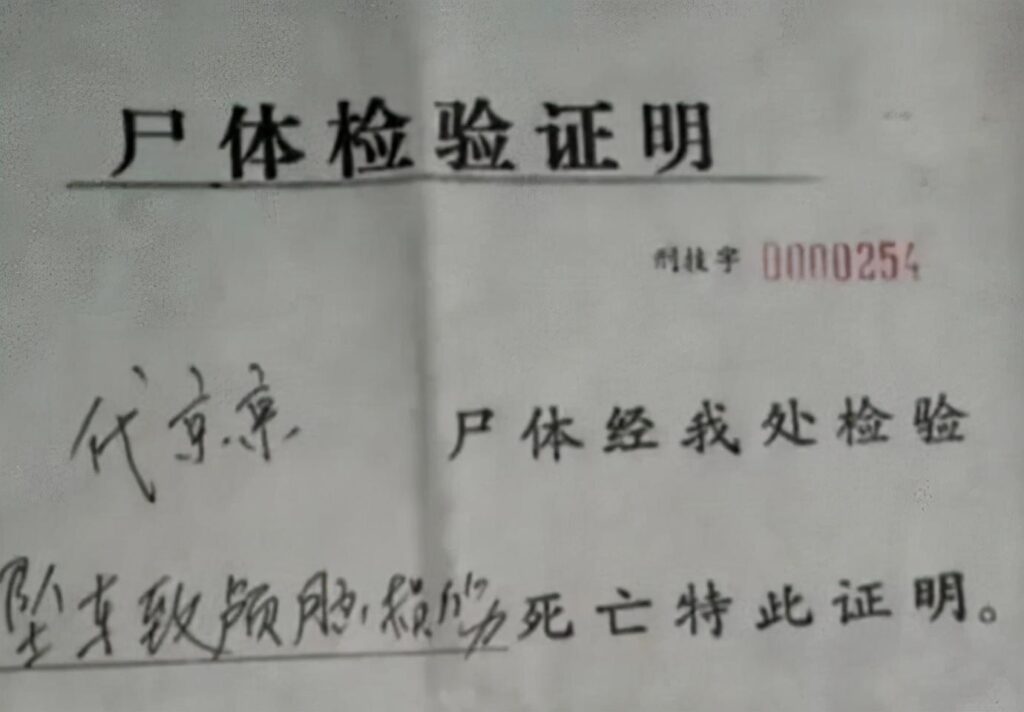 尸体检验证明
刑技字 0000254
代京京 尸体经我处检验
坠车致颅脑损伤死亡特此证明。